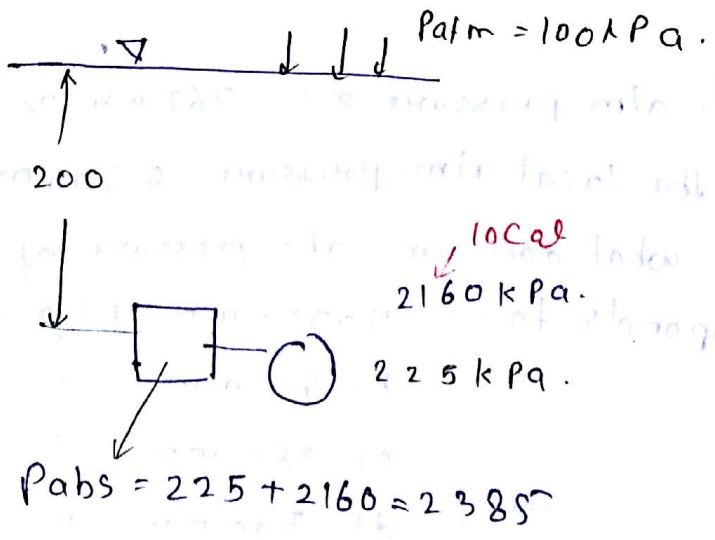 Patm = 100kPa.
200
local
2160 kPa.
225 kPa.
Pabs = 225 + 2160 = 2385